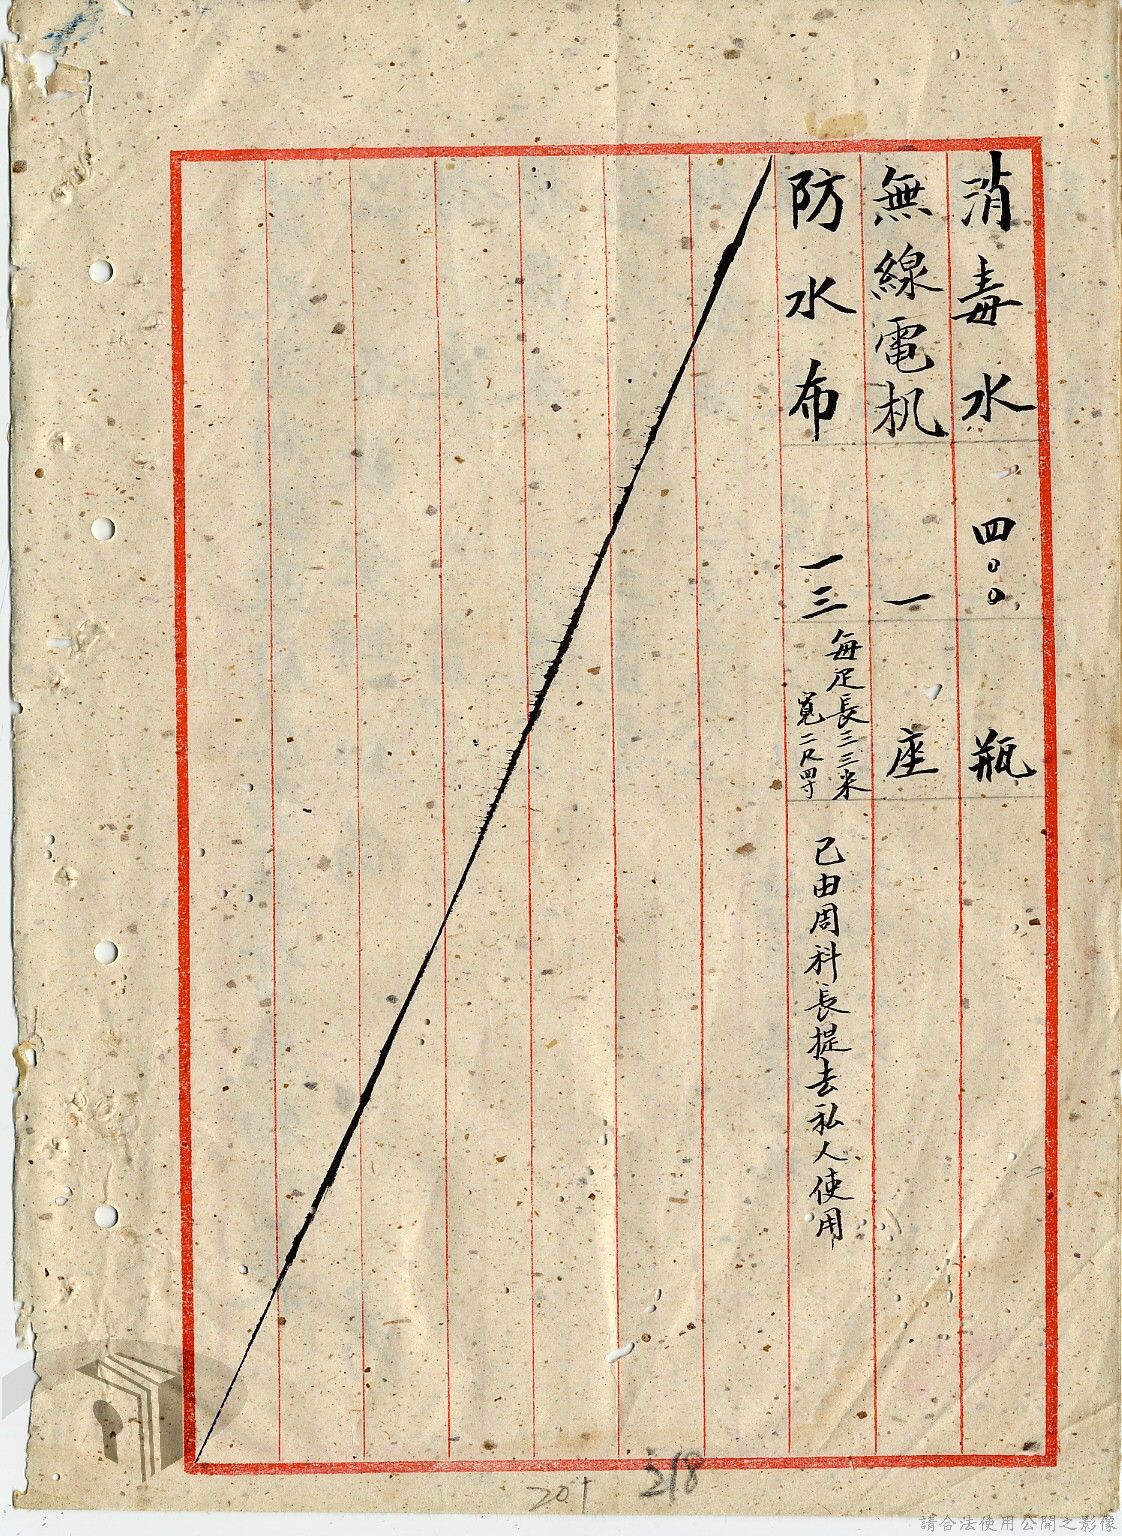 消毒水 四〇〇 瓶
無線電机 一 座
防水布 一三 每疋長三三米
寬二尺四寸
已由周科長提去私人使用
201
218
請合法使用公開之影像